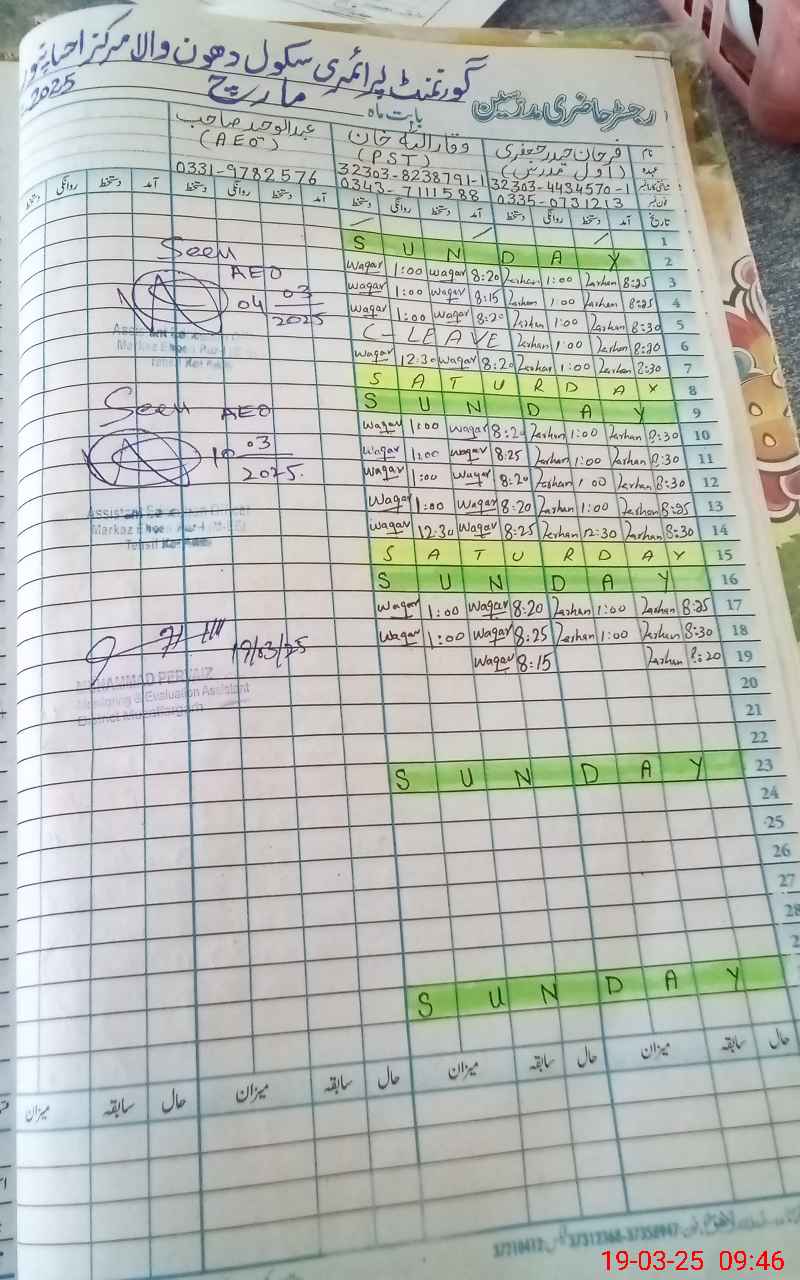 گورنمنٹ پرائمری سکول دھون والا مرکز
رجسٹر حاضری مدرسین
بابت ماہ مارچ 2025
نام فرحان حیدر جعفری وقار اللہ خان عبدالوحید صاحب
عہدہ (اول مدرس) (PST) (AEO)
32303-4434570-1 32303-8238791-1 0331-9782576
0335-0731213 0343-7111588
تاریخ آمد دستخط روانگی دستخط آمد دستخط روانگی دستخط آمد دستخط روانگی دستخط آمد دستخط روانگی دستخط
1
SUNDAY 2
Waqar 1:00 Waqar 8:20 Farhan 1:00 Farhan 8:25 3
Waqar 1:00 Waqar 8:15 Farhan 1:00 Farhan 8:25 4
Waqar 1:00 Waqar 8:20 Farhan 1:00 Farhan 8:30 5
C-LEAVE Farhan 1:00 Farhan 8:30 6
Waqar 12:30 Waqar 8:20 Farhan 1:00 Farhan 8:30 7
SATURDAY 8
SUNDAY 9
Waqar 1:00 Waqar 8:20 Farhan 1:00 Farhan 8:30 10
Waqar 1:00 Waqar 8:25 Farhan 1:00 Farhan 8:30 11
Waqar 1:00 Waqar 8:20 Farhan 1:00 Farhan 8:30 12
Waqar 1:00 Waqar 8:20 Farhan 1:00 Farhan 8:25 13
Waqar 12:30 Waqar 8:25 Farhan 12:30 Farhan 8:30 14
SATURDAY 15
SUNDAY 16
Waqar 1:00 Waqar 8:20 Farhan 1:00 Farhan 8:25 17
Waqar 1:00 Waqar 8:25 Farhan 1:00 Farhan 8:30 18
Waqar 8:15 Farhan 8:20 19
20
21
22
SUNDAY 23
24
25
26
27
28
SUNDAY
Seen
AEO
04 03
2025
Assistant
Markaz
Seen AEO
10 03
2025.
Assistant
Markaz
19/03/25
MUHAMMAD PERVAIZ
Monitoring & Evaluation Assistant
District Muzaffargarh
حال سابقہ میزان حال سابقہ میزان حال سابقہ میزان حال سابقہ میزان
19-03-25 09:46